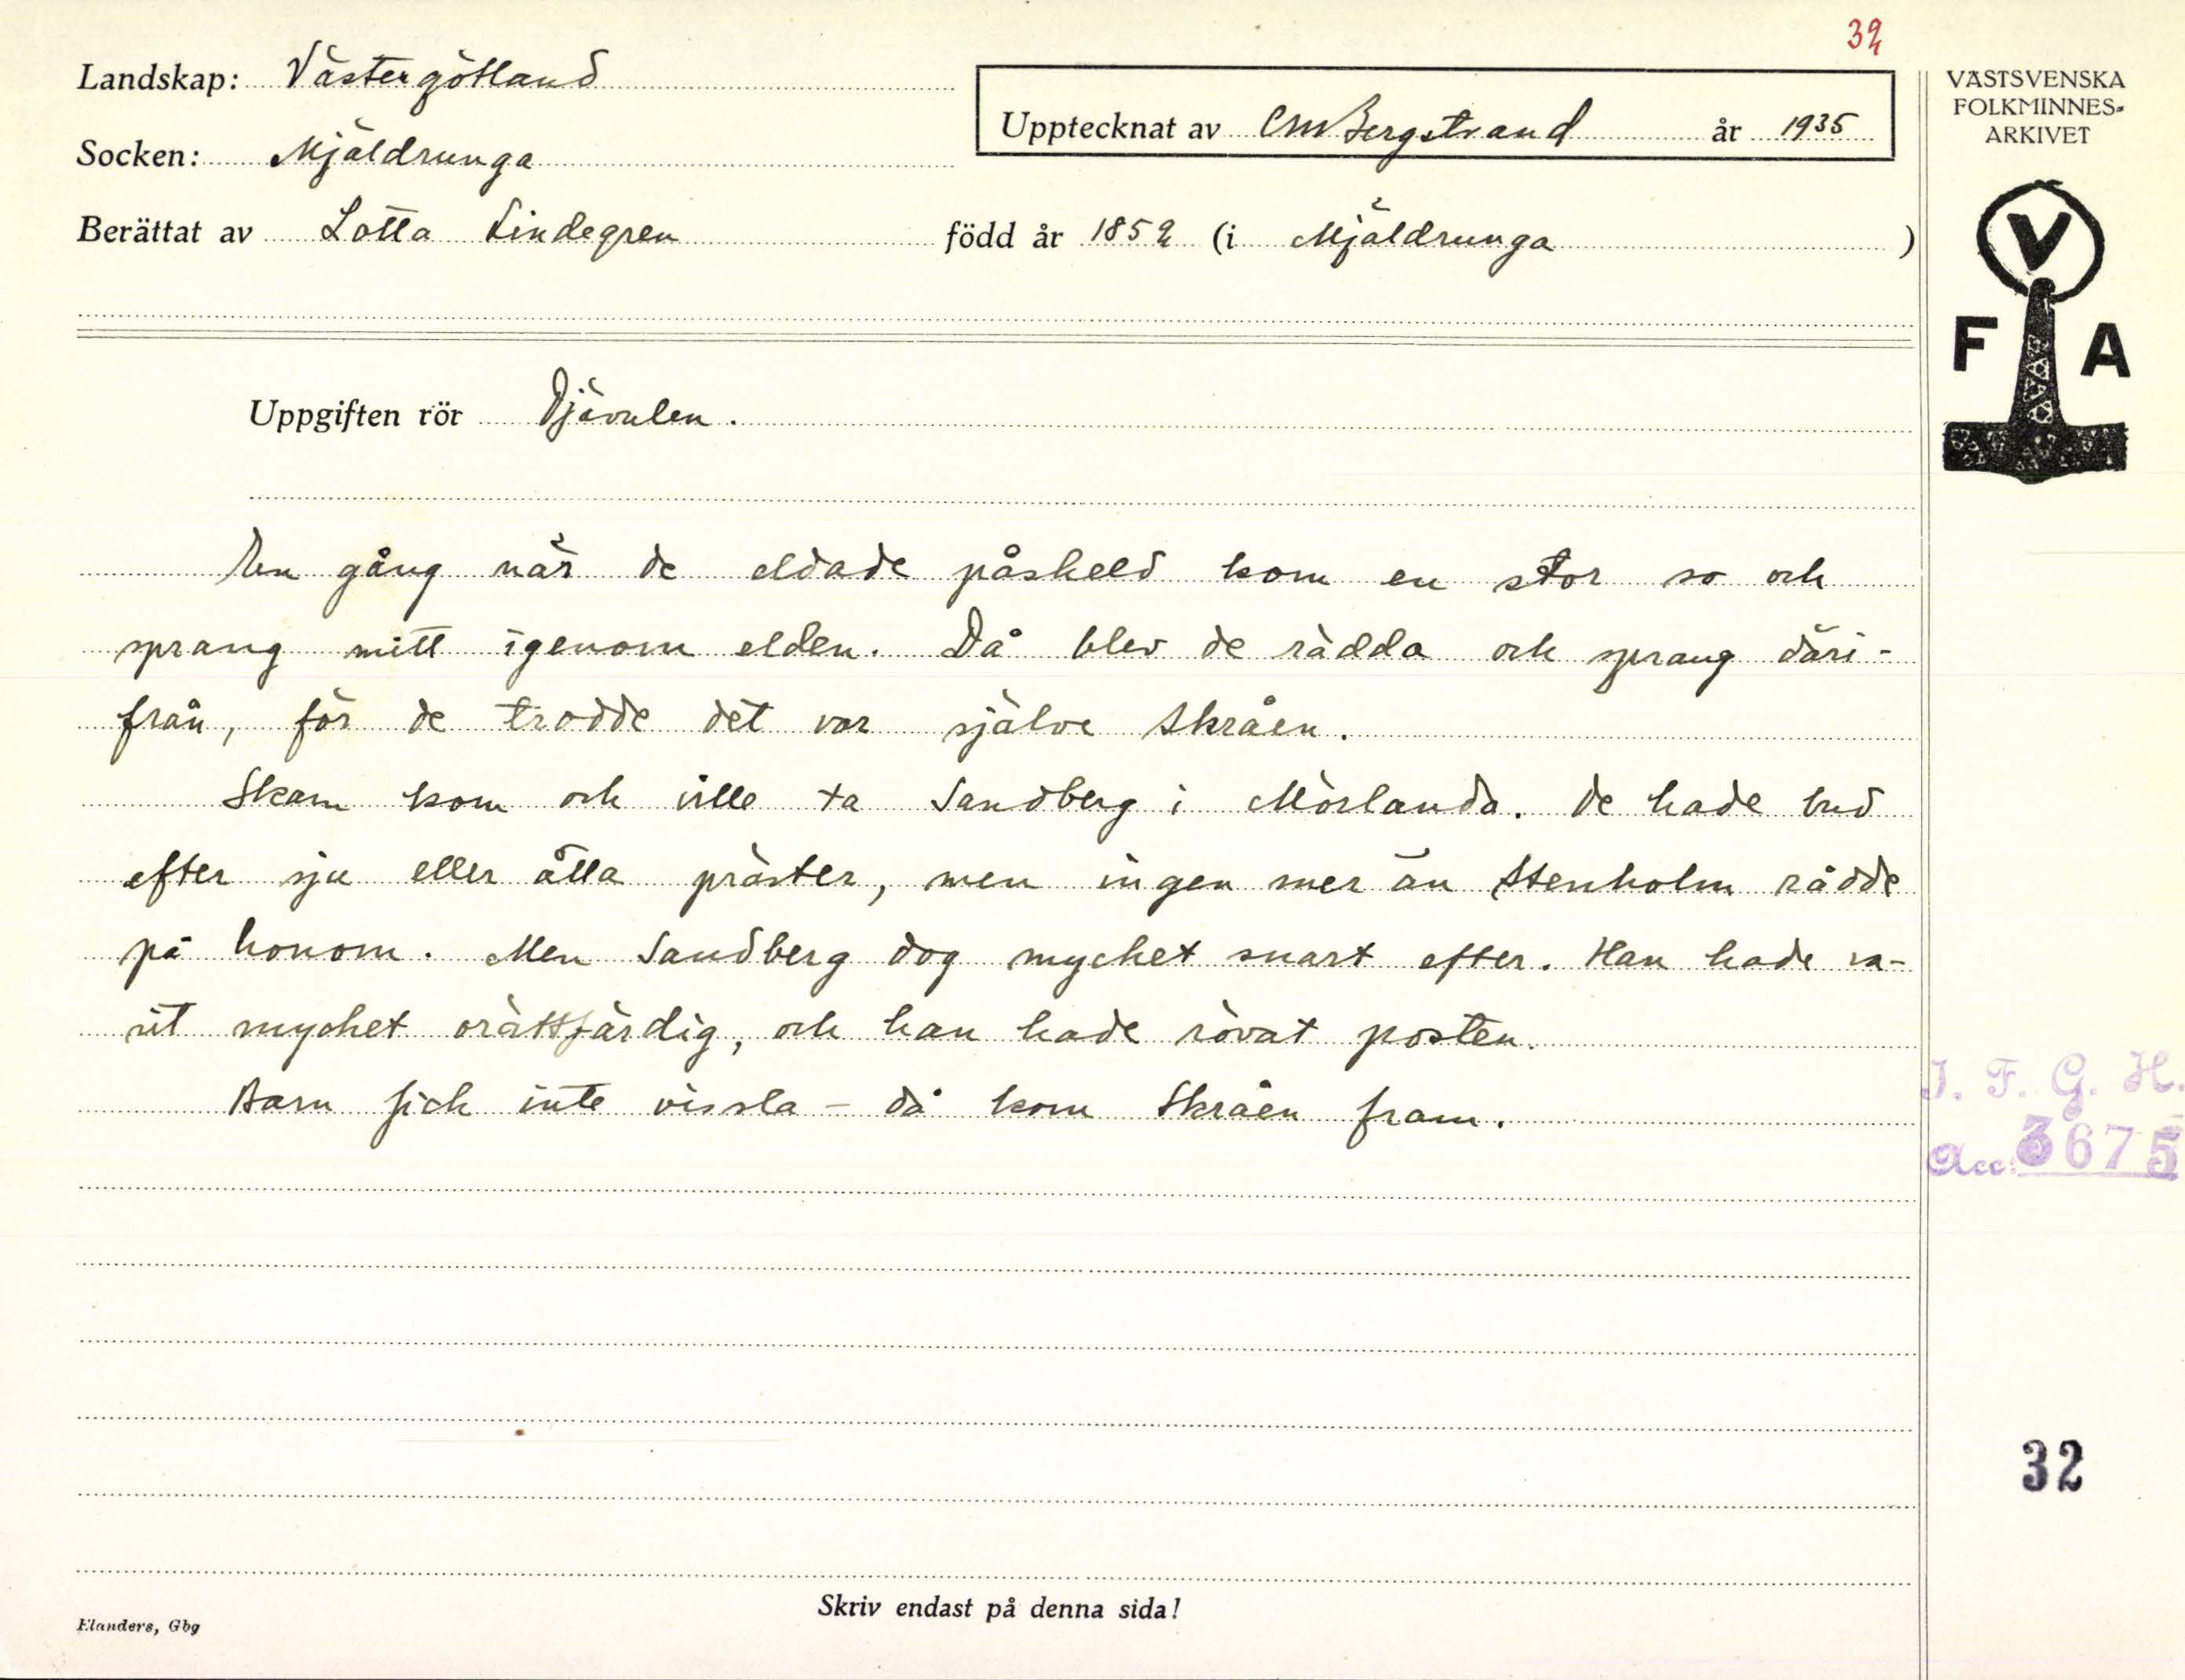 32
Landskap: Västergötland
Upptecknat av CMBergstrand år 1935
Socken: Mjäldrunga
Berättat av Lotta Lindegren född år 1852 (i Mjäldrunga )
VÄSTSVENSKA
FOLKMINNES-
ARKIVET
V
F A
Uppgiften rör Djävulen.
En gång när de eldade påskeld kom en stor so och
sprang mitt igenom elden. Då blev de rädda och sprang däri-
från, för de trodde det var självе Skråen.
Skam kom och ville ta Sandberg i Mörlanda. De hade bud
efter sju eller åtta präster, men ingen mer än Stenholm rådde
på honom. Men Sandberg dog mycket snart efter. Han hade va-
rit mycket orättfärdig, och han hade rövat posten.
Barn fick inte vissla – då kom Skråen fram.
I. F. G. H.
Acc: 3675
32
Skriv endast på denna sida!
Elanders, Gbg